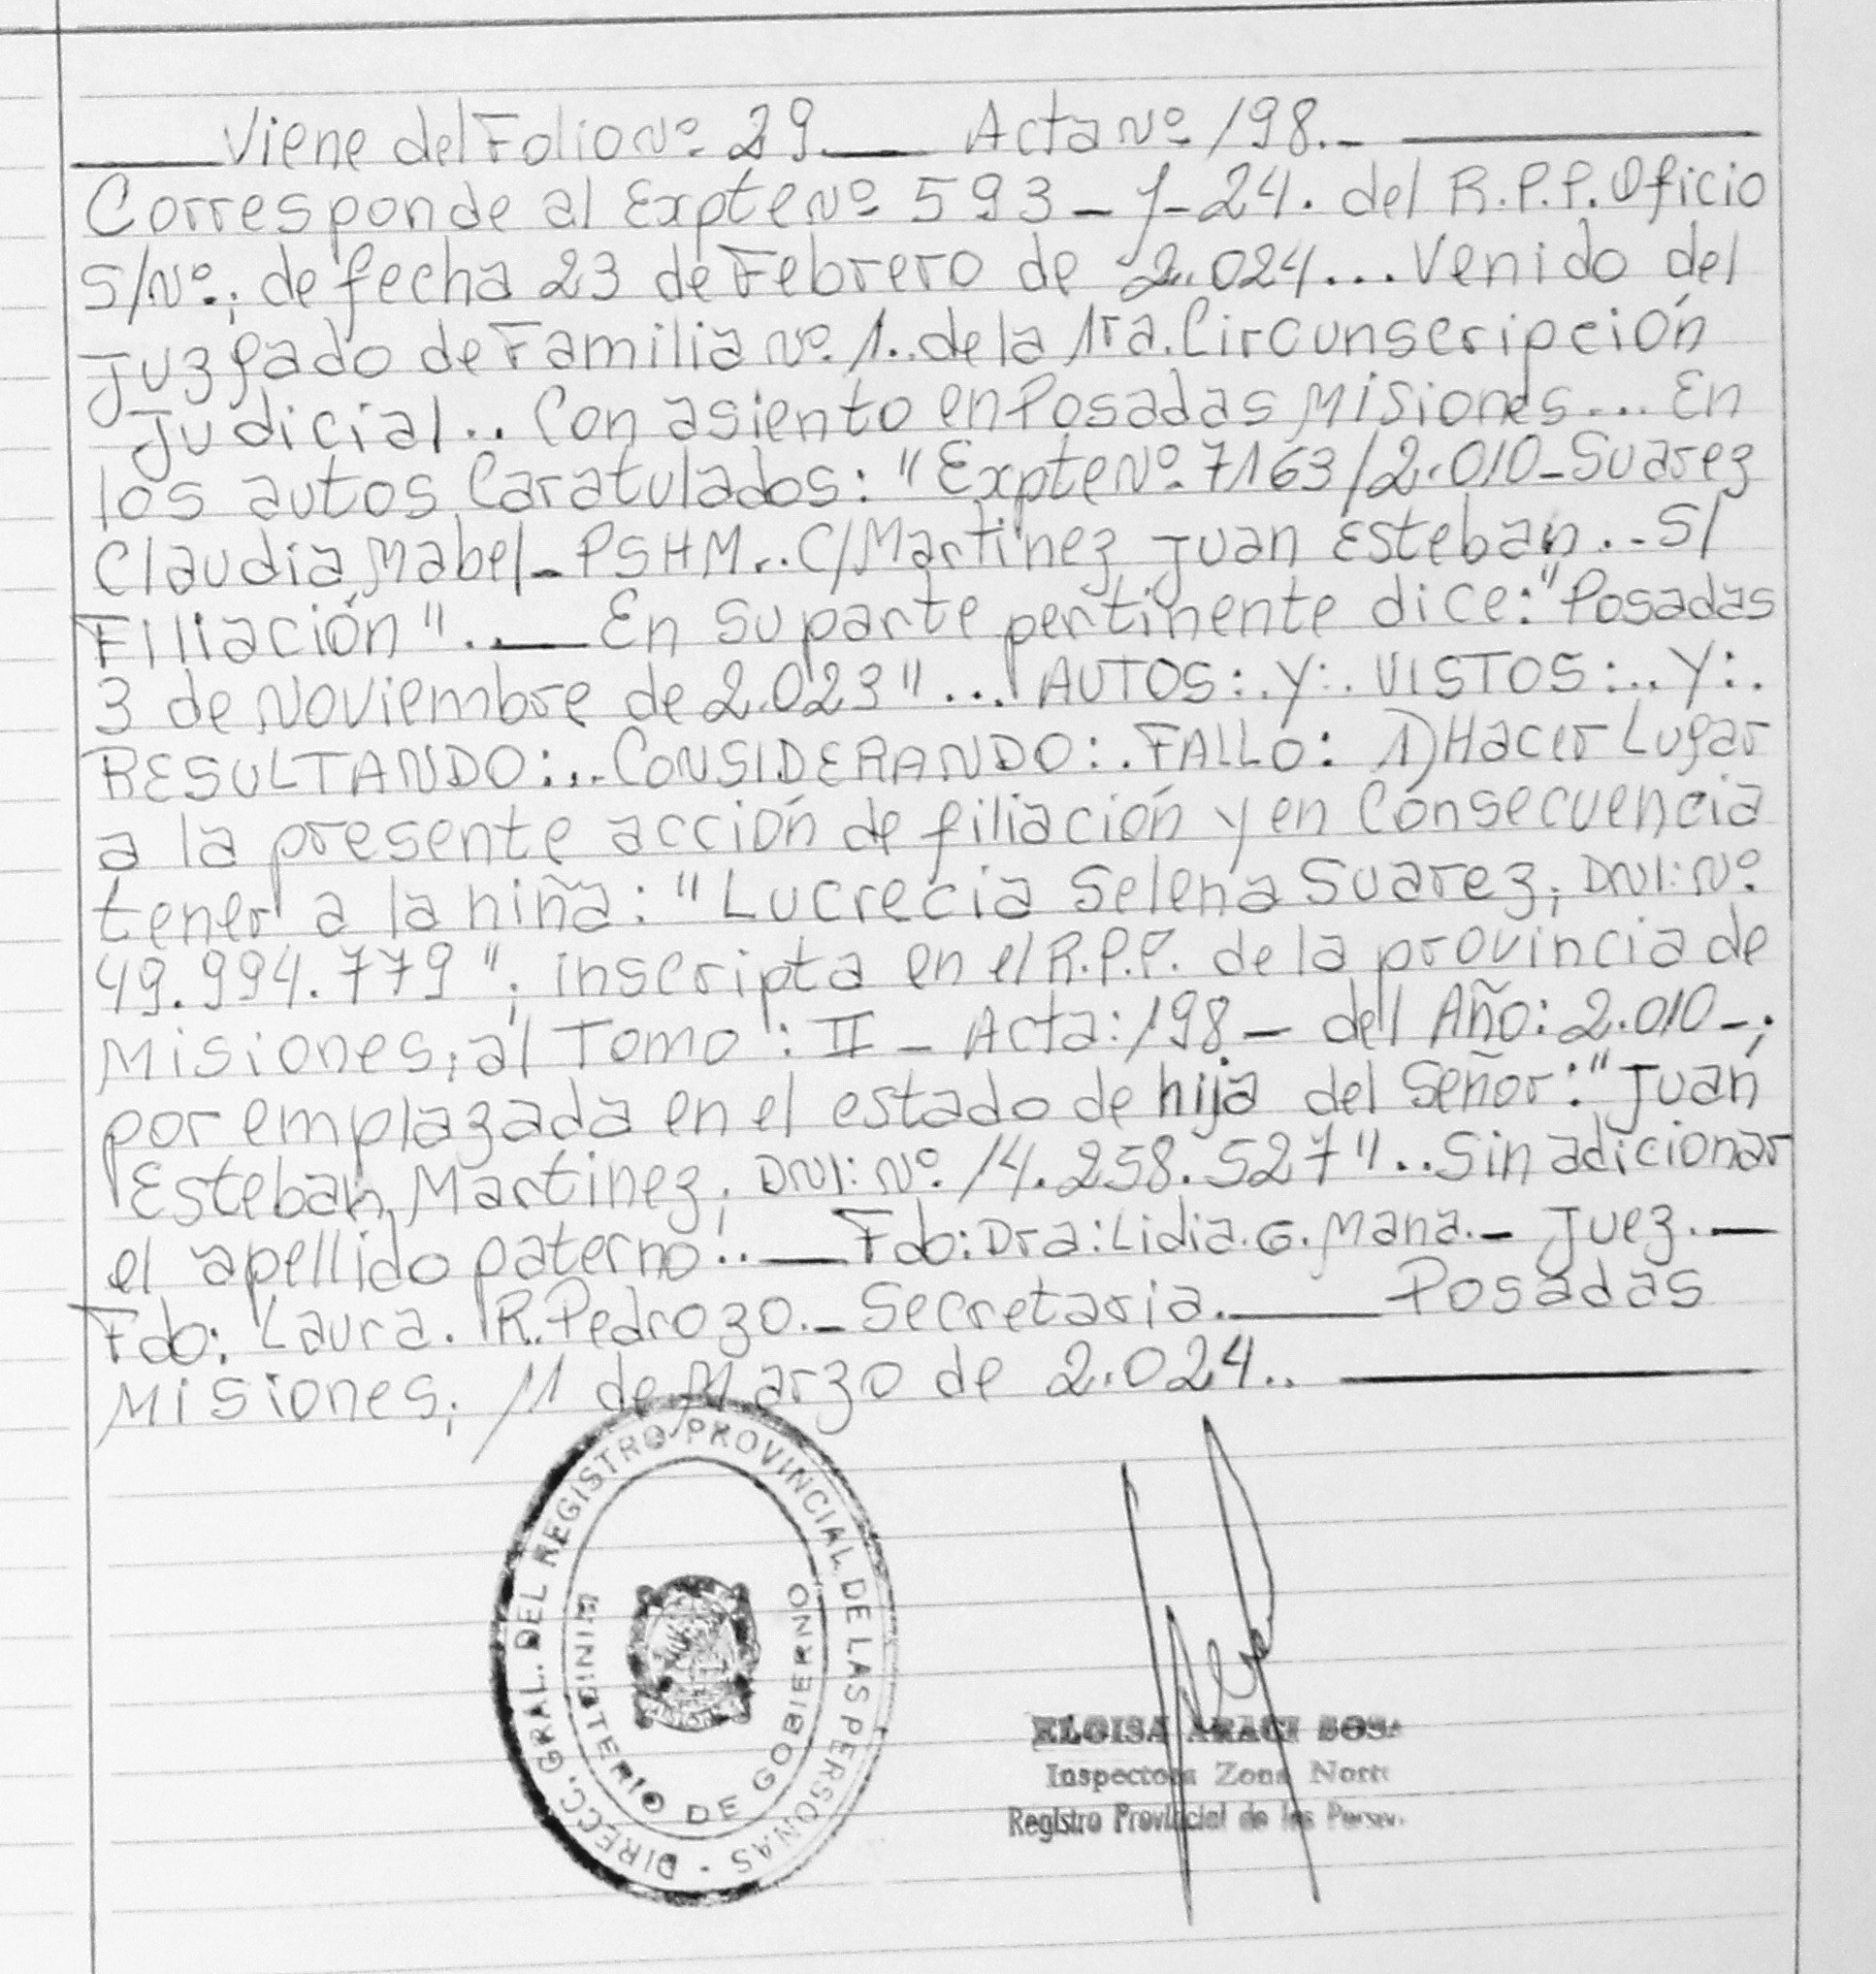 Viene del Folio Nº 29.___ Acta Nº 198.-
Corresponde al Expte Nº 593-J-24. del R.P.P. Oficio
S/Nº.; de fecha 23 de Febrero de 2.024... Venido del
Juzgado de Familia Nº. 1.. de la 1ra. Circunscripción
Judicial.. Con asiento en Posadas Misiones... En
los autos Caratulados: "Expte Nº. 7163/2.010-Suarez
Claudia Mabel-PSHM... C/Martinez Juan Esteban... S/
Filiación".___ En su parte pertinente dice: "Posadas
3 de Noviembre de 2.023"... AUTOS:. Y:. VISTOS:.. Y:.
RESULTANDO:... CONSIDERANDO:. FALLO: 1) Hacer Lugar
a la presente acción de filiación y en Consecuencia
tener a la niña: "Lucrecia Selena Suarez; DNI: Nº
49.994.779"; inscripta en el R.P.P. de la provincia de
Misiones; al Tomo: II - Acta: 198 - del Año: 2.010-;
por emplazada en el estado de hija del Señor: "Juan
Esteban Martinez; DNI: Nº. 14.258.527".. Sin adicionar
el apellido paterno...___ Fdo: Dra: Lidia. G. Mana.- Juez.-
Fdo: Laura. R. Pedrozo.- Secretaria.___ Posadas
Misiones; 11 de Marzo de 2.024..
DIRECC. GRAL. DEL REGISTRO PROVINCIAL DE LAS PERSONAS
MINISTERIO DE GOBIERNO
ELOISA ARACI SOSA
Inspectora Zona Norte
Registro Provincial de las